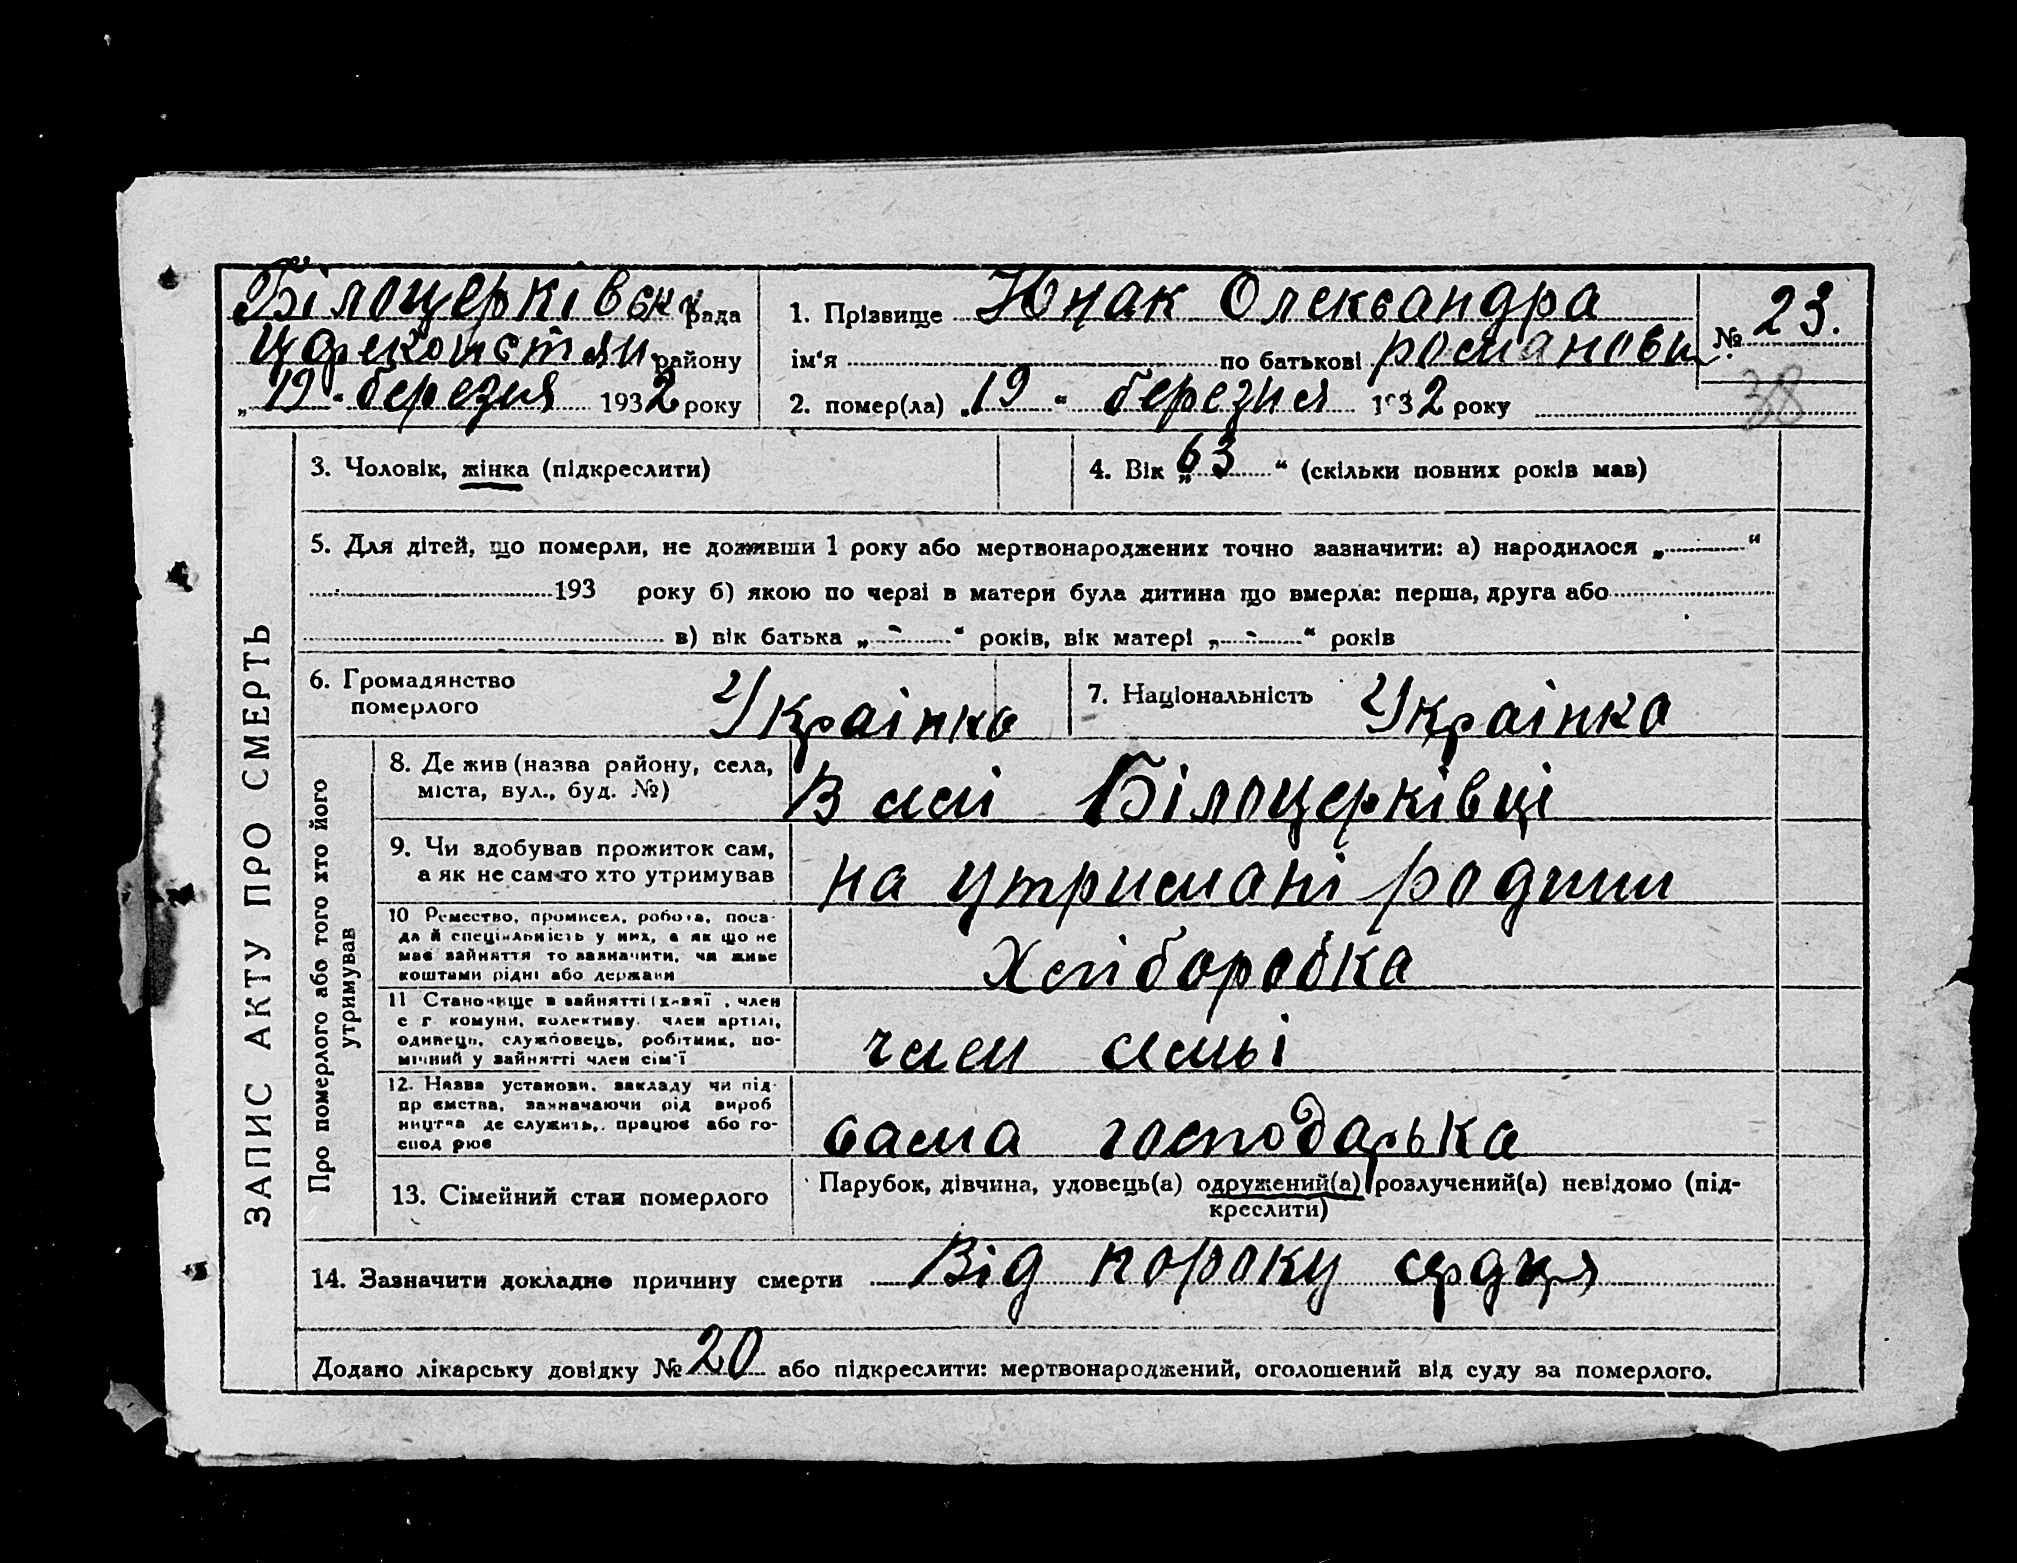 Білоцерківськ рада
району
„19“ березня 1932 року
1. Прізвище Юнак Олександра
ім'я по батькові романовн.
2. помер(ла) „19“ березня 1932 року
№ 23.
38
ЗАПИС АКТУ ПРО СМЕРТЬ
3. Чоловік, жінка (підкреслити)
4. Вік „63“ (скільки повних років мав)
5. Для дітей, що померли, не доживши 1 року або мертвонароджених точно зазначити: а) народилося „ “
193 року б) якою по черзі в матери була дитина що вмерла: перша, друга або
в) вік батька „-“ років, вік матері „-“ років
6. Громадянство
померлого
Українка
7. Національність Українка
Про померлого або того хто його
утримував
8. Де жив (назва району, села,
міста, вул., буд. №)
В селі Білоцерківці
9. Чи здобував прожиток сам,
а як не сам то хто утримував
на утримані родини
10 Ремество, промисел, робота, поса-
да й спеціяльність у них, а як що не
має зайняття то зазначити, чи живе
коштами рідні або держави
Хліборобка
11 Становище в зайнятті (хазяї , член
с г. комуни, колективу. член артілі,
одинець, службовець, робітник, по-
мічний у зайнятті член сім'ї
член симьі
12. Назва установи, закладу чи під-
пр ємства, зазначаючи рід вироб
ництва де служить, працює або го-
спод рює
сама господарька
13. Сімейний стан померлого
Парубок, дівчина, удовець(а) одружений(а) розлучений(а) невідомо (під-
креслити)
14. Зазначити докладно причину смерти Від пороку сердця
Додано лікарську довідку № 20 або підкреслити: мертвонароджений, оголошений від суду за померлого.